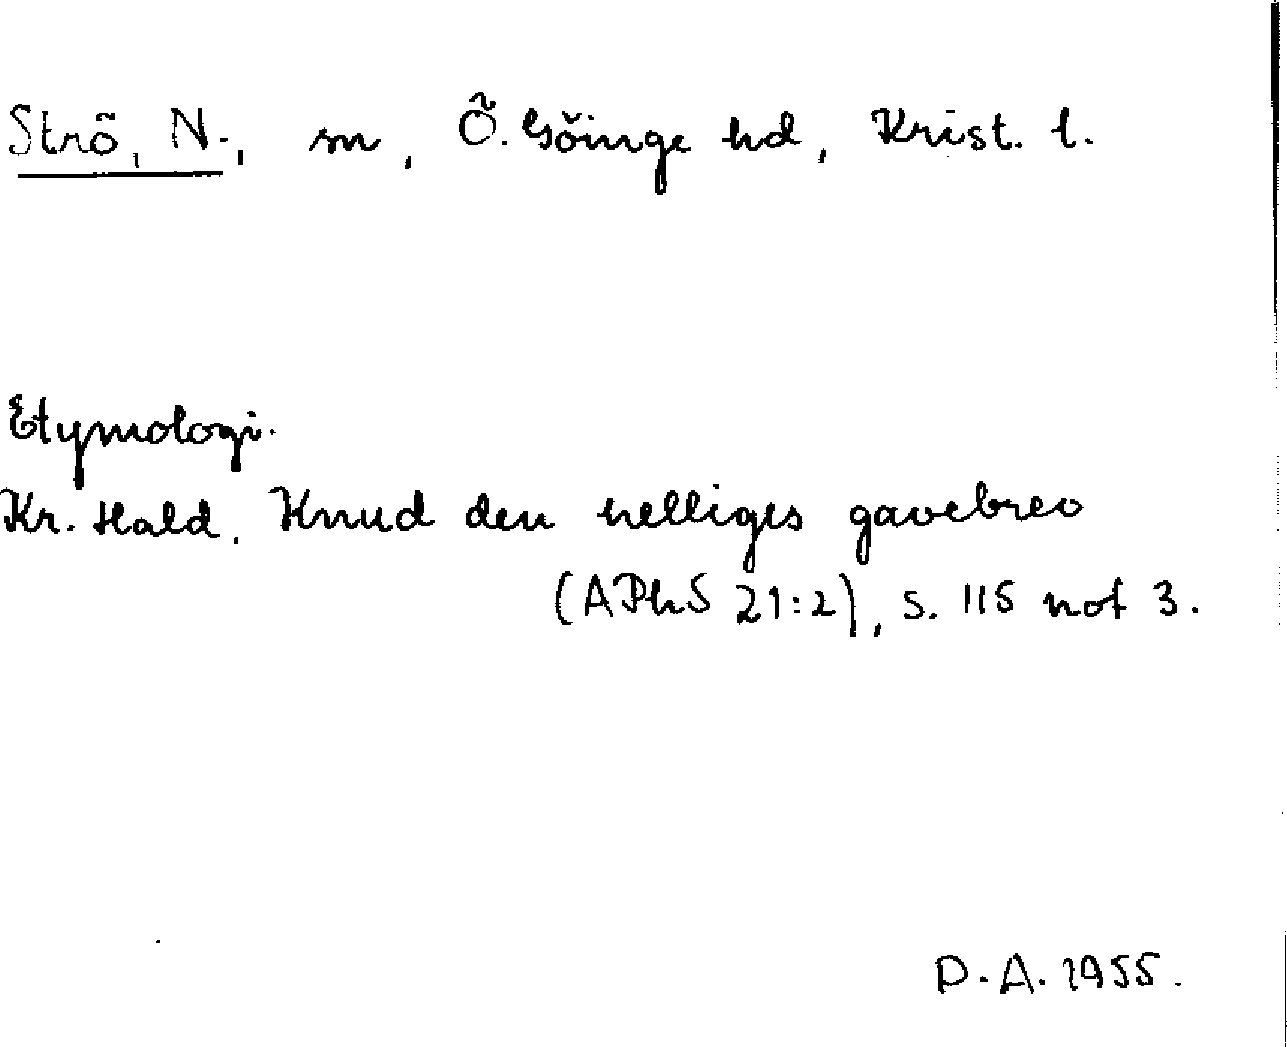 Strö, N., sn, Ö. Göinge hd, Krist. l.
Etymologi.
Kr. Hald, Knud den helliges gavebrev
(APhS 21:2), s. 115 not 3.
P.A. 1955.